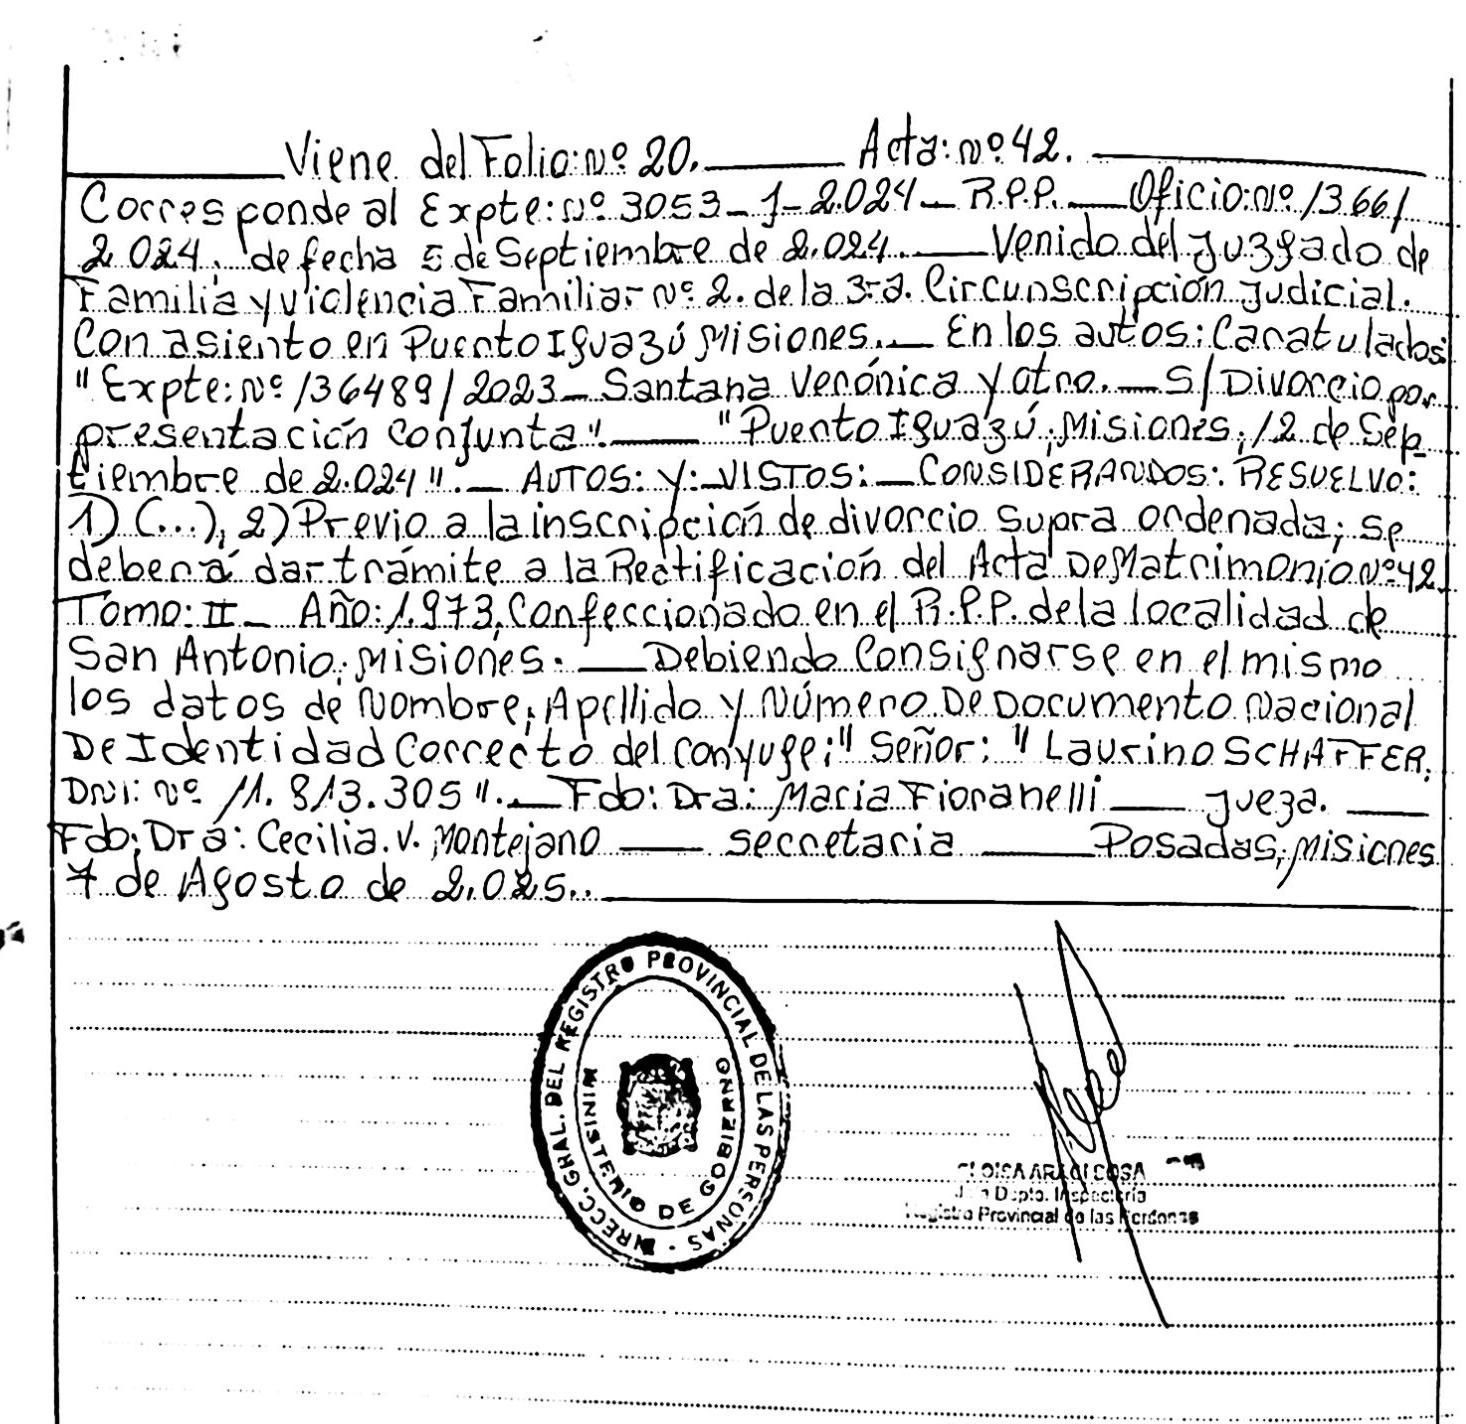 Viene del Folio: Nº 20. Acta: nº 42.
Corresponde al Expte: Nº 3053-J-2.024 R.P.P. Oficio: Nº 1366/
2.024, de fecha 5 de Septiembre de 2.024. Venido del Juzgado de
Familia y violencia Familiar Nº 2. de la 3ra. Circunscripción Judicial.
Con asiento en Puerto Iguazú Misiones. En los autos: Caratulados
"Expte: Nº 136489/2023 - Santana Verónica y otro. S/ Divorcio por
presentación conjunta". "Puerto Iguazú, Misiones, 12 de Sep_
tiembre de 2.024". AUTOS: Y: VISTOS: CONSIDERANDOS: RESUELVO:
1) (...), 2) Previo a la inscripción de divorcio supra ordenada; se
deberá dar trámite a la Rectificación del Acta De Matrimonio Nº 42
Tomo: II - Año: 1.973, Confeccionado en el R.P.P. de la localidad de
San Antonio, Misiones. Debiendo Consignarse en el mismo
los datos de Nombre, Apellido y Número De Documento Nacional
De Identidad Correcto del conyuge; "Señor: "Laurino SCHAFFER,
DNI: Nº 11.813.305". Fdo: Dra: Maria Fioranelli Jueza.
Fdo: Dra: Cecilia. V. Montejano secretaria Posadas, Misiones
7 de Agosto de 2.025.
DIRECC. GRAL. DEL REGISTRO PROVINCIAL DE LAS PERSONAS
MINISTERIO DE GOBIERNO
Dpto. Inspectoría
Registro Provincial de las Personas